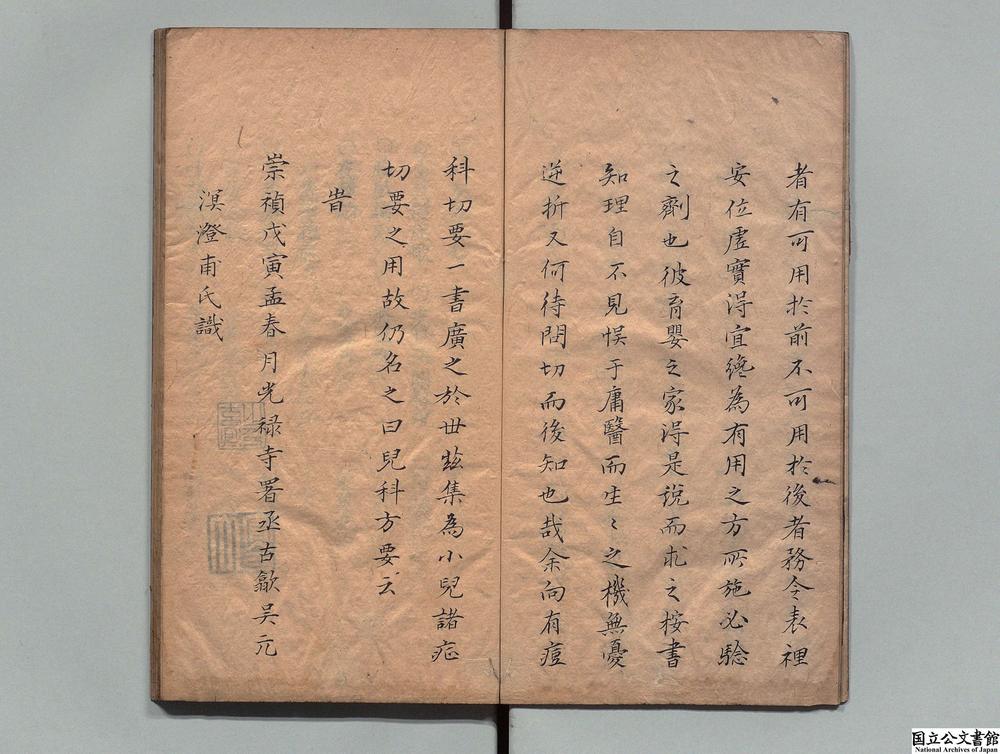 者有可用於前不可用於後者務令表裡
安位虛實得宜纔為有用之方所施必驗
之劑也彼育嬰之家得是說而求之按書
知理自不見悞于庸醫而生〻之機無憂
逆折又何待問切而後知也哉余向有痘
科切要一書廣之於世玆集為小兒諸症
切要之用故仍名之曰兒科方要云
旹
崇禎戊寅孟春月光祿寺署丞古歙吳元
溟澄甫氏識
国立公文書館
National Archives of Japan